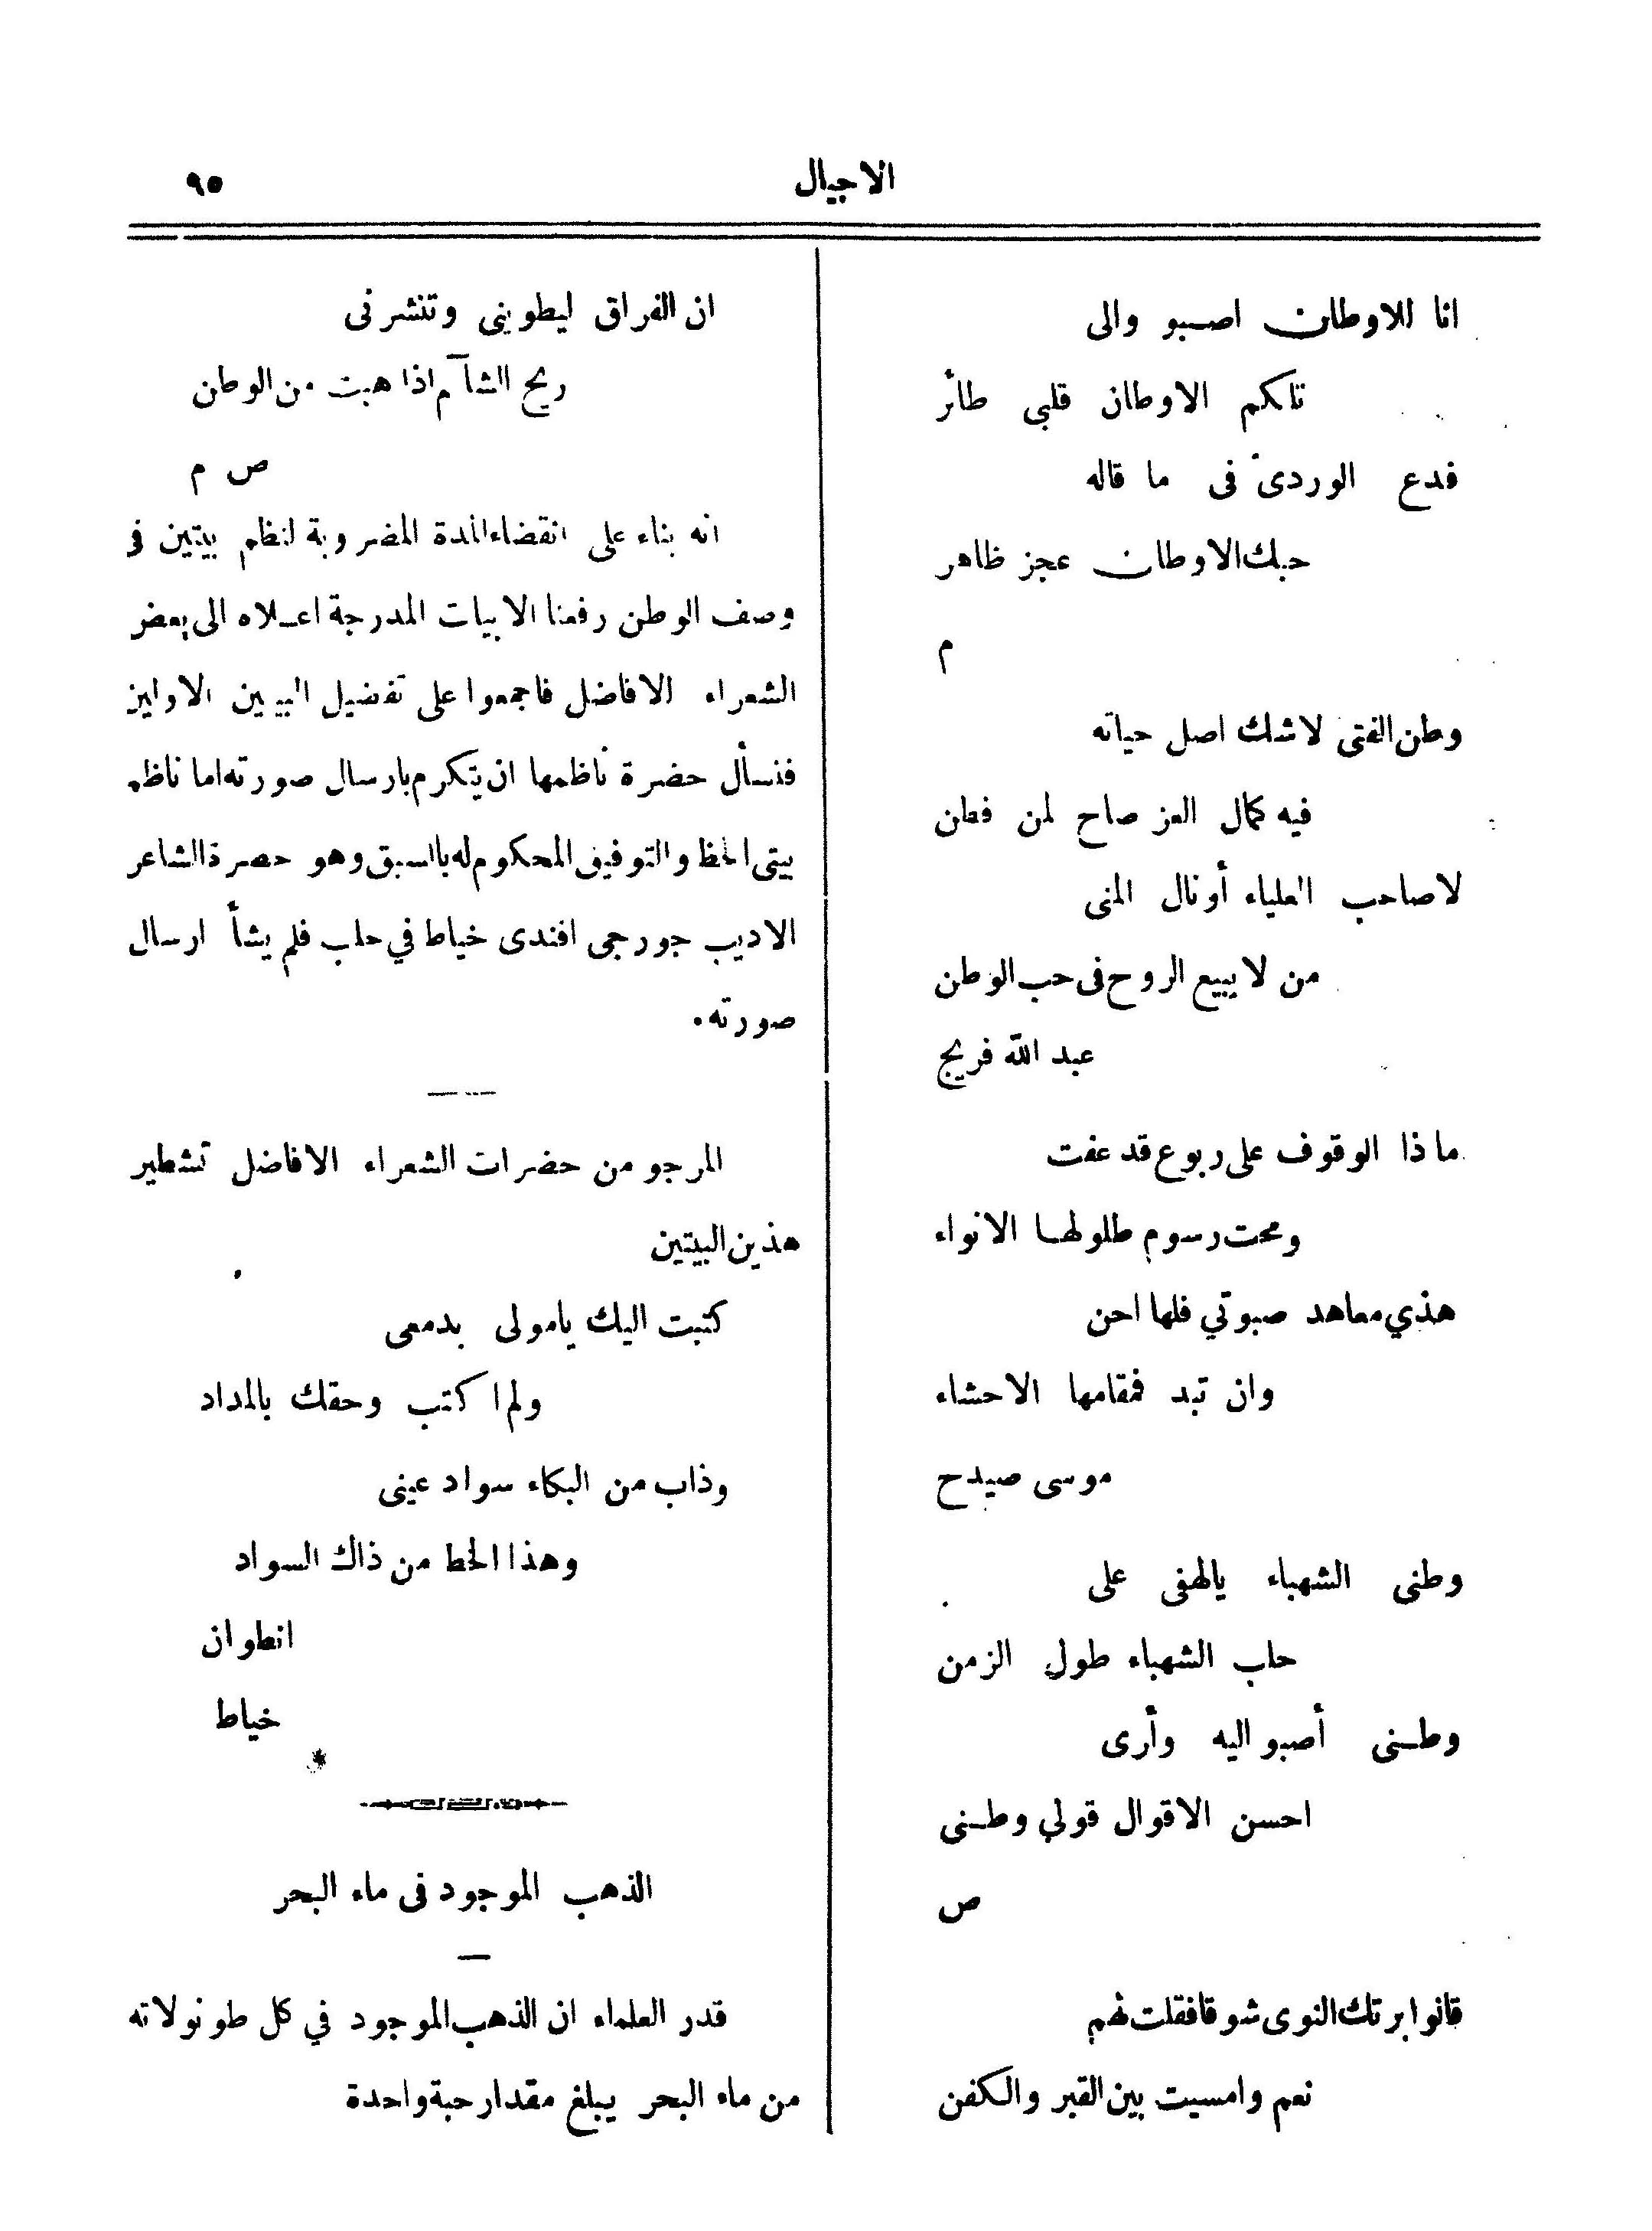 الاجيال
٩٥
انا للاوطان اصبو والى
تلكم الاوطان قلبى طائر
فدع الوردى فى ما قاله
حبك الاوطان عجز ظاهر
م
وطن الفتى لاشك اصل حياته
فيه كمال العز صاح لمن فطن
لاصاحب العلياء أو نال المنى
من لا يبيع الروح فى حب الوطن
عبد الله فريج
ما ذا الوقوف على ربوع قد عفت
ومحت رسوم طلولها الانواء
هذي معاهد صبوتي فلها احن
وان تبد فمقامها الاحشاء
موسى صيدح
وطنى الشهباء يالهفى على
حلب الشهباء طول الزمن
وطنى أصبو اليه وأرى
احسن الاقوال قولي وطنى
ص
قالوا برتك النوى شوقا فقلت لهم
نعم وامسيت بين القبر والكفن
ان الفراق ليطوينى وتنشرنى
ريح الشآم اذا هبت من الوطن
ص م
انه بناء على انقضاء المدة المضروبة لنظم بيتين فى
وصف الوطن رفعنا الابيات المدرجة اعلاه الى بعض
الشعراء الافاضل فاجمعوا على تفضيل البيتين الاولين
فنسأل حضرة ناظمها ان يتكرم بارسال صورته اما ناظم
بيتى الحظ والتوفيق المحكوم له بالسبق وهو حضرة الشاعر
الاديب جورجى افندى خياط في حلب فلم يشأ ارسال
صورته.
المرجو من حضرات الشعراء الافاضل تشطير
هذين البيتين
كتبت اليك يامولى بدمعى
ولم اكتب وحقك بالمداد
وذاب من البكاء سواد عينى
وهذا الخط من ذاك السواد
انطوان
خياط
الذهب الموجود فى ماء البحر
قدر العلماء ان الذهب الموجود في كل طونولاته
من ماء البحر يبلغ مقدار حبة واحدة